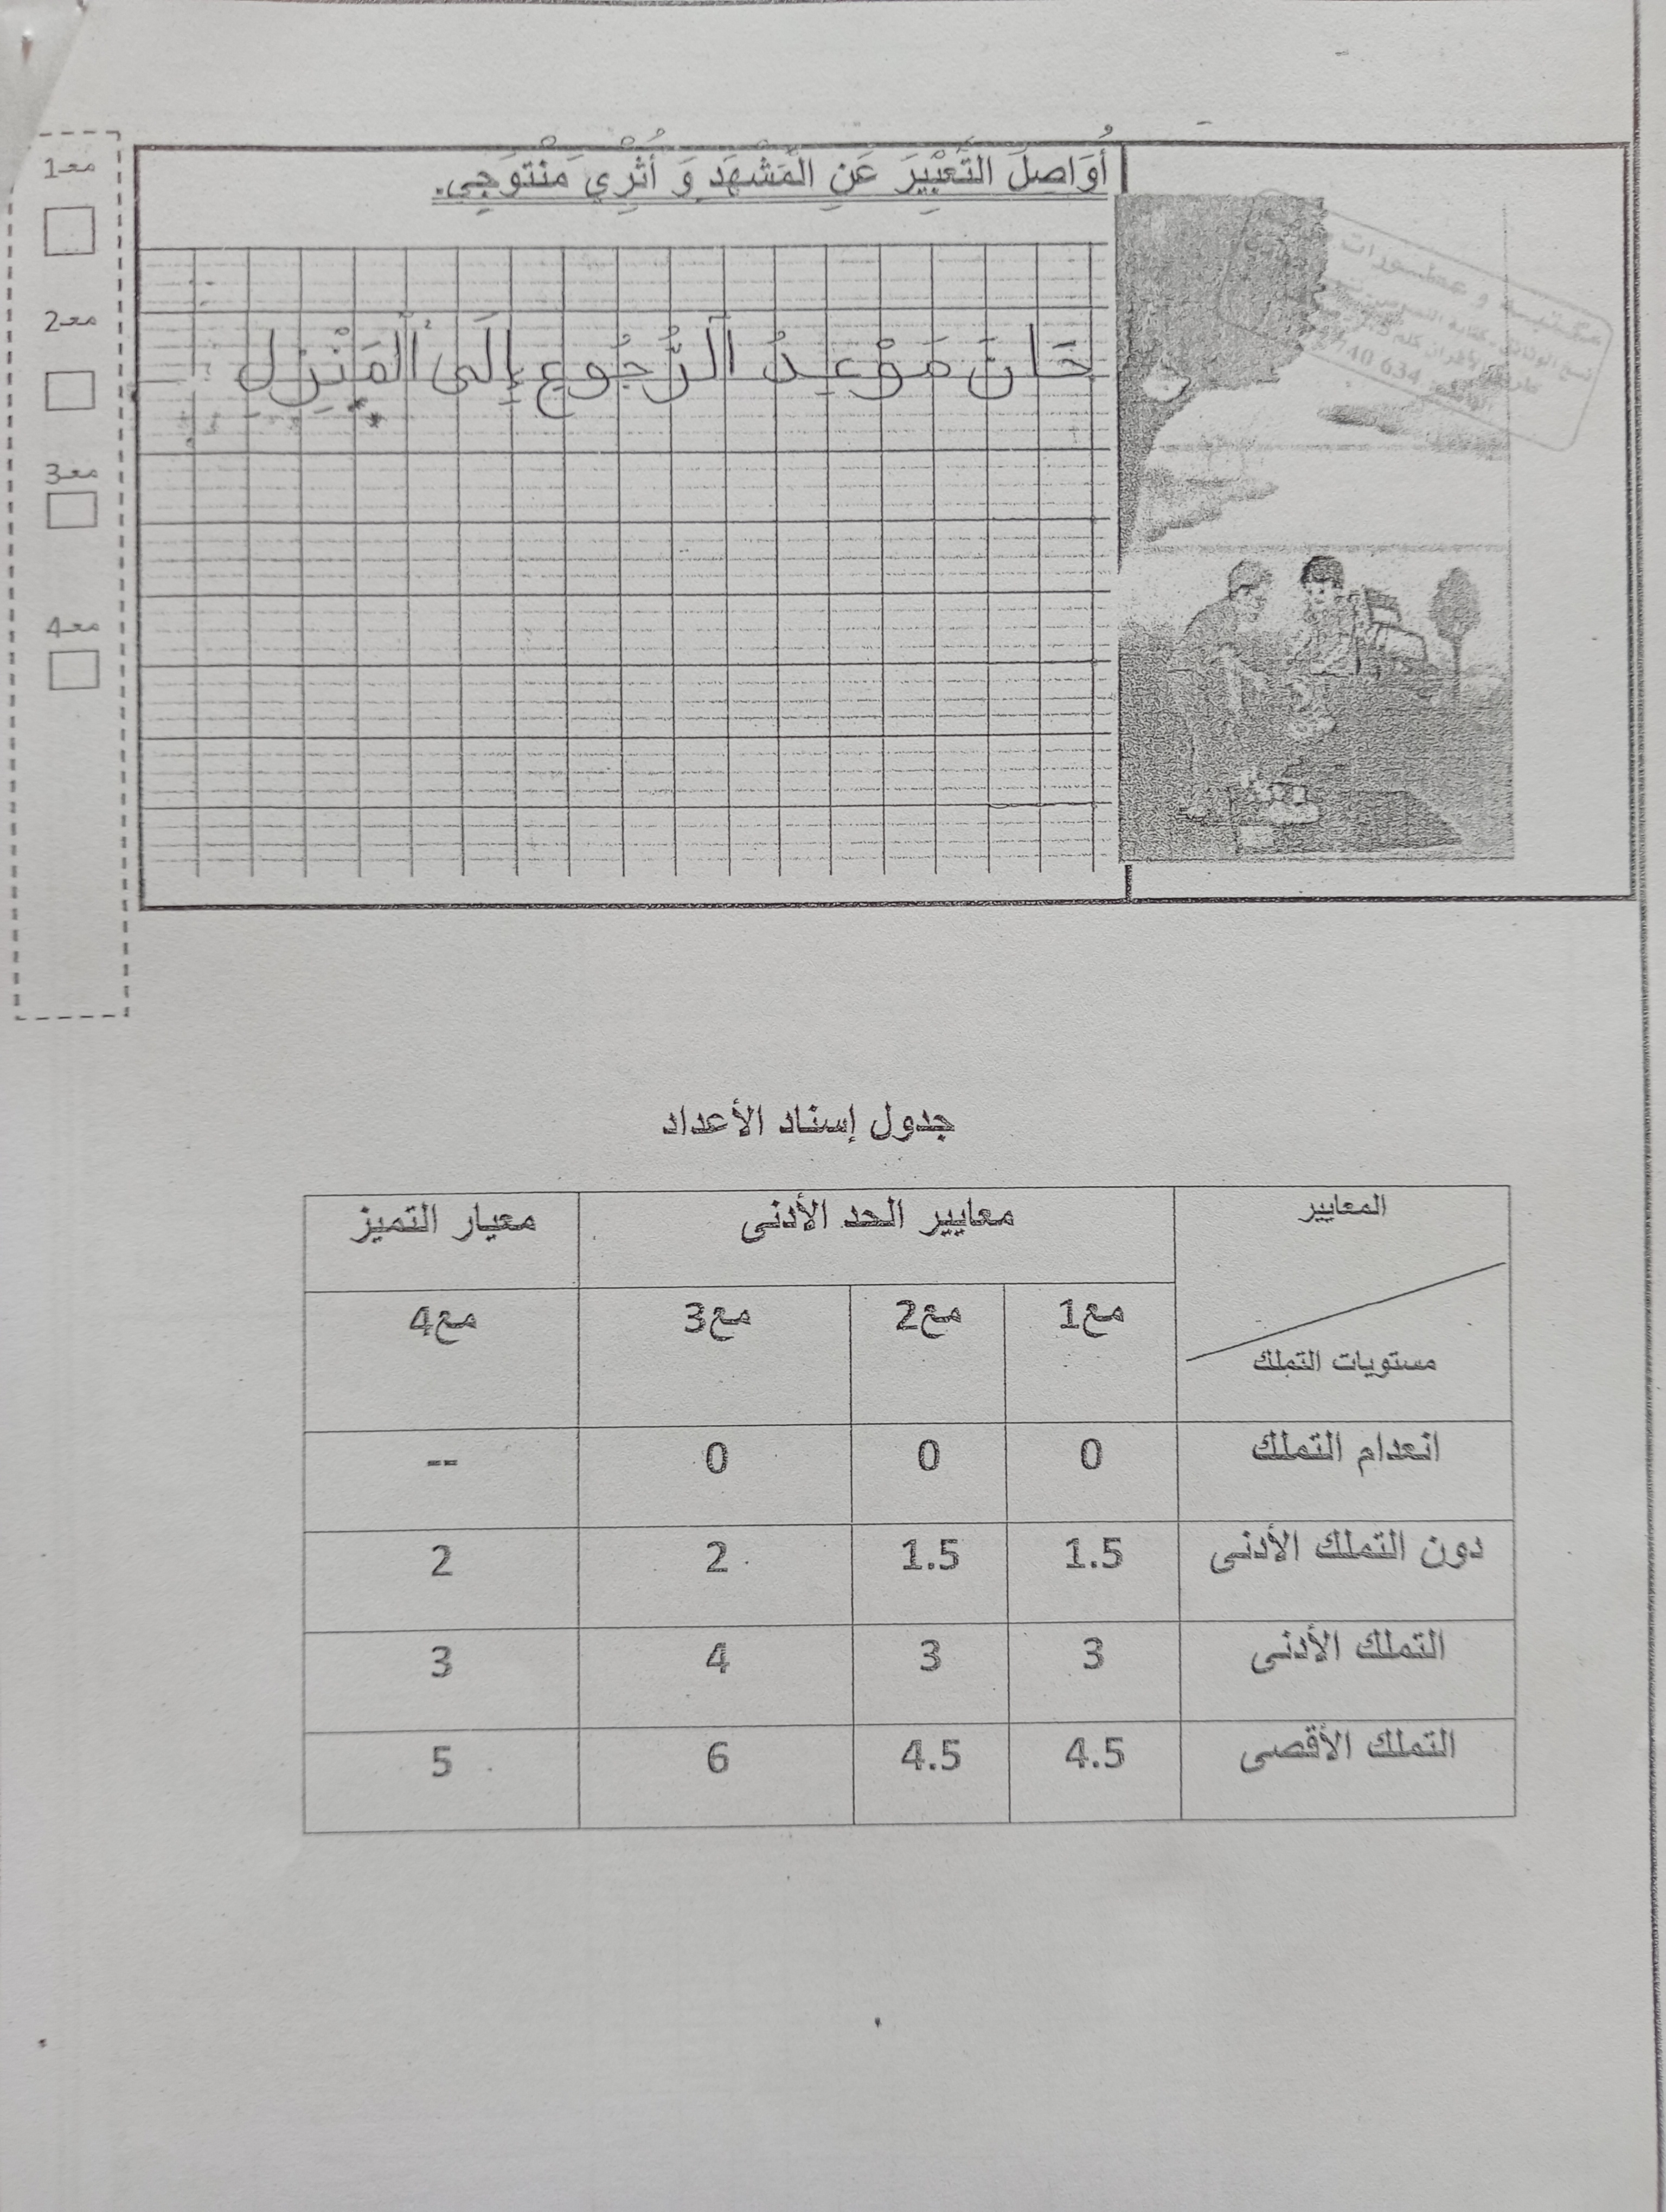 أُوَاصِلُ التَّعْبِيرَ عَنِ الْمَشْهَدِ وَ أُثْرِي مُنْتَوجِي.
حَانَ مَوْعِدُ ٱلرُّجُوعِ إِلَى ٱلْمَنْزِلِ
مع1
مع2
مع3
مع4
جدول إسناد الأعداد
المعايير
مستويات التملك
معايير الحد الأدنى
معيار التميز
مع1 مع2 مع3 مع4
انعدام التملك 0 0 0 --
دون التملك الأدنى 1.5 1.5 2 2
التملك الأدنى 3 3 4 3
التملك الأقصى 4.5 4.5 6 5